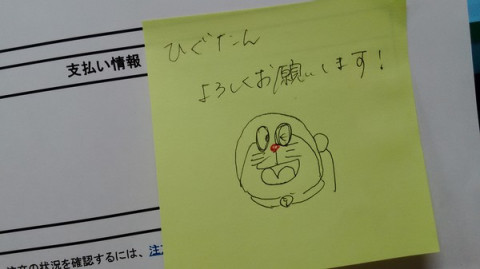 支払い情報
ひぐたん
よろしくお願いします!
注文の状況を確認するには、注文